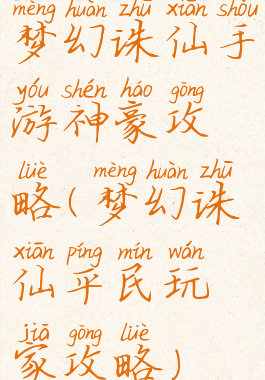 mèng huàn zhū xiān shǒu
梦幻诛仙手
yóu shén háo gōng
游神豪攻
lüè mèng huàn zhū
略(梦幻诛
xiān píng mín wán
仙平民玩
jiā gōng lüè
家攻略)